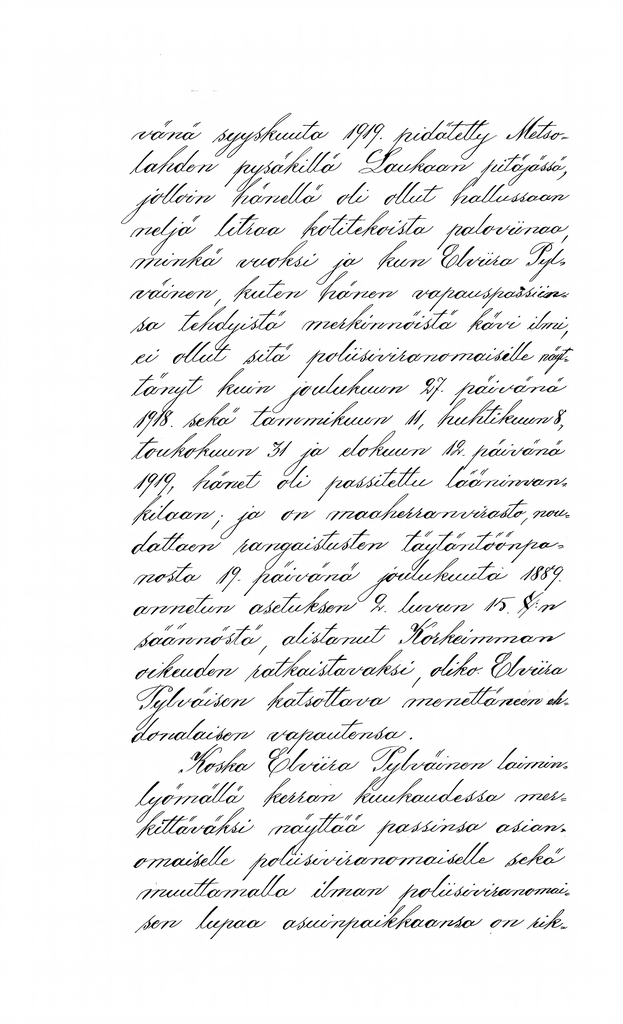 vänä syyskuuta 1919. pidätetty Metso-
lahden pysäkillä Laukaan pitäjässä,
jolloin hänellä oli ollut hallussaan
neljä litraa kotitekoista paloviinaa,
minkä vuoksi ja kun Elviira Pyl-
väinen, kuten hänen vapauspassiin-
sa tehdyistä merkinnöistä kävi ilmi,
ei ollut sitä poliisiviranomaiselle näyt-
tänyt kuin joulukuun 27. päivänä
1918. sekä tammikuun 11, huhtikuun 8,
toukokuun 31 ja elokuun 12. päivänä
1919, hänet oli passitettu lääninvan-
kilaan; ja on maaherranvirasto, nou-
dattaen rangaistusten täytäntöönpa-
nosta 19. päivänä joulukuuta 1889.
annetun asetuksen 2. luvun 15. §:n
säännöstä, alistanut Korkeimman
oikeuden ratkaistavaksi, oliko Elviira
Pylväisen katsottava menettäneen eh-
donalaisen vapautensa.
Koska Elviira Pylväinen laimin-
lyömällä kerran kuukaudessa mer-
kittäväksi näyttää passinsa asian-
omaiselle poliisiviranomaiselle sekä
muuttamalla ilman poliisiviranomai-
sen lupaa asuinpaikkaansa on rik-